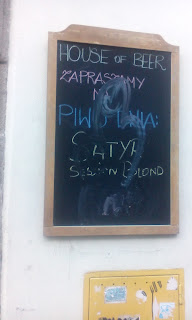 HOUSE OF BEER
ZAPRASZAMY
NA
PIWO DNIA:
SATYR
SESSION BLOND